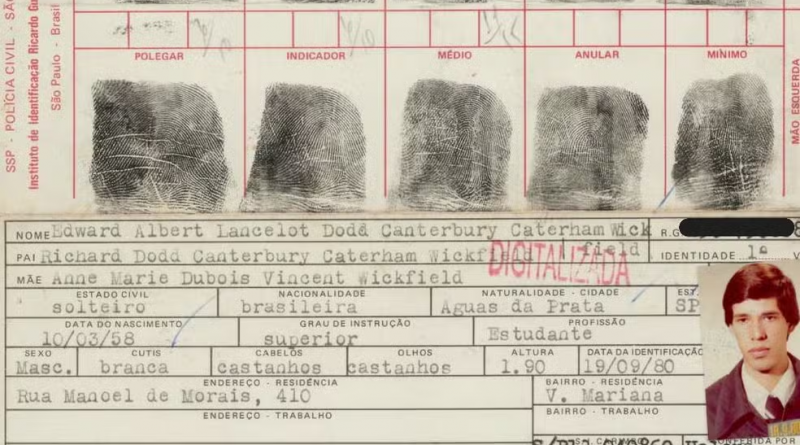 SSP - POLÍCIA CIVIL - SÃO
Instituto de Identificação Ricardo Gu
São Paulo - Brasil
POLEGAR INDICADOR MÉDIO ANULAR MÍNIMO
MÃO ESQUERDA
NOME Edward Albert Lancelot Dodd Canterbury Caterham Wick R.G. 8
field
PAI Richard Dodd Canterbury Caterham Wickfield IDENTIDADE 1ª V
DIGITALIZADA
MÃE Anne Marie Dubois Vincent Wickfield
ESTADO CIVIL NACIONALIDADE NATURALIDADE - CIDADE EST
solteiro brasileira Aguas da Prata SP
DATA DO NASCIMENTO GRAU DE INSTRUÇÃO PROFISSÃO
10/03/58 superior Estudante
SEXO CUTIS CABELOS OLHOS ALTURA DATA DA IDENTIFICAÇÃO
Masc. branca castanhos castanhos 1.90 19/09/80
ENDEREÇO - RESIDÊNCIA BAIRRO - RESIDÊNCIA
Rua Manoel de Morais, 410 V. Mariana
ENDEREÇO - TRABALHO BAIRRO - TRABALHO